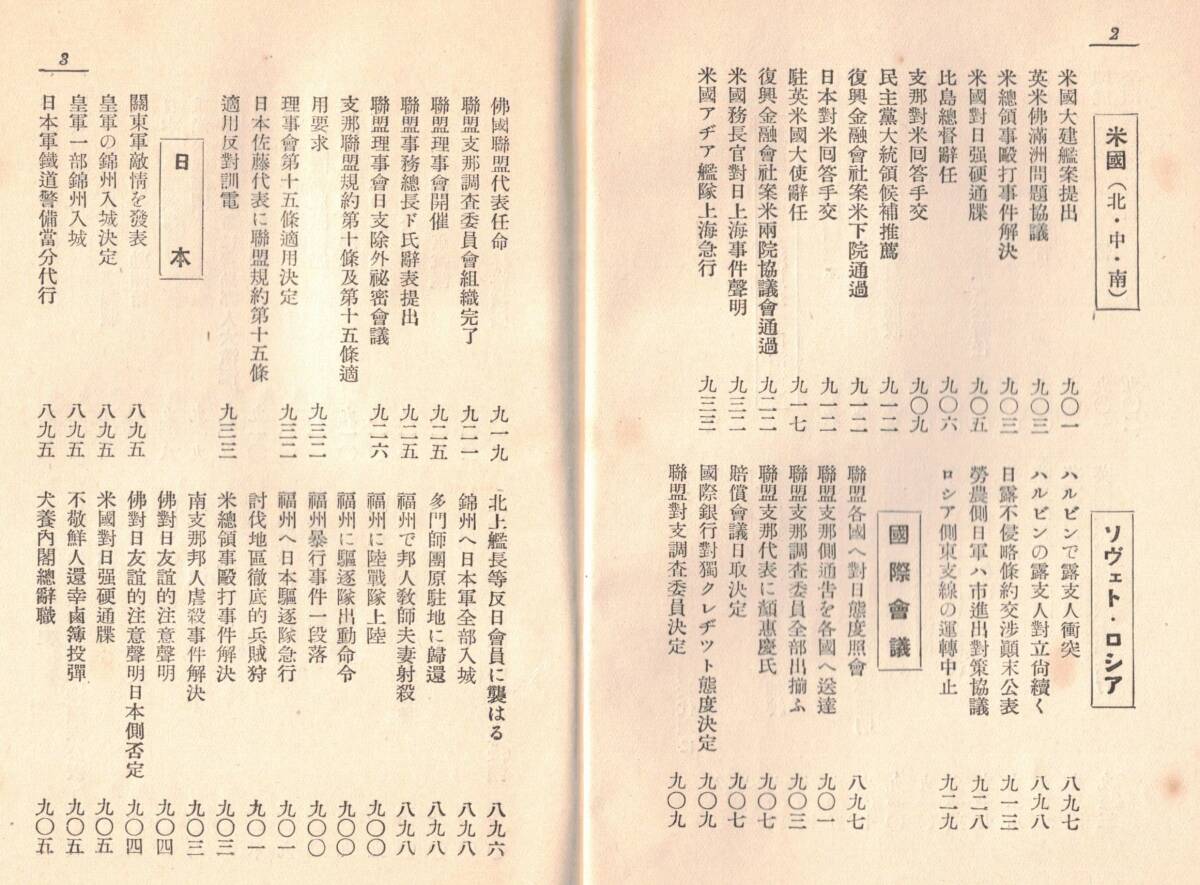 2
米國（北・中・南）
米國大建艦案提出 九〇一
英米佛滿洲問題協議 九〇三
米總領事毆打事件解決 九〇三
米國對日强硬通牒 九〇五
比島總督辭任 九〇六
支那對米回答手交 九〇九
民主黨大統領候補推薦 九一二
復興金融會社案米下院通過 九一二
日本對米回答手交 九一二
駐英米國大使辭任 九一七
復興金融會社案米兩院協議會通過 九二二
米國務長官對日上海事件聲明 九三二
米國アヂア艦隊上海急行 九三三
ソヴェト・ロシア
ハルビンで露支人衝突 八九七
ハルビンの露支人對立尙續く 八九八
日露不侵略條約交涉顚末公表 九一三
勞農側日軍ハ市進出對策協議 九二八
ロシア側東支線の運轉中止 九二九
國際會議
聯盟各國へ對日態度照會 八九七
聯盟支那側通吿を各國へ送達 九〇一
聯盟支那調査委員全部出揃ふ 九〇三
聯盟支那代表に顏惠慶氏 九〇七
賠償會議日取決定 九〇七
國際銀行對獨クレヂツト態度決定 九〇九
聯盟對支調査委員決定 九〇九
3
佛國聯盟代表任命 九一九
聯盟支那調査委員會組織完了 九二一
聯盟理事會開催 九二五
聯盟事務總長ド氏辭表提出 九二五
聯盟理事會日支除外祕密會議 九二六
支那聯盟規約第十條及第十五條適
用要求 九三二
理事會第十五條適用決定 九三二
日本佐藤代表に聯盟規約第十五條
適用反對訓電 九三三
日本
關東軍敵情を發表 八九五
皇軍の錦州入城決定 八九五
皇軍一部錦州入城 八九五
日本軍鐵道警備當分代行 八九五
北上艦長等反日會員に襲はる 八九六
錦州へ日本軍全部入城 八九八
多門師團原駐地に歸還 八九八
福州で邦人敎師夫妻射殺 八九八
福州に陸戰隊上陸 九〇〇
福州に驅逐隊出動命令 九〇〇
福州暴行事件一段落 九〇〇
福州へ日本驅逐隊急行 九〇一
討伐地區徹底的兵賊狩 九〇一
米總領事毆打事件解決 九〇三
南支那邦人虐殺事件解決 九〇三
佛對日友誼的注意聲明 九〇四
佛對日友誼的注意聲明日本側否定 九〇四
米國對日强硬通牒 九〇五
不敬鮮人還幸鹵簿投彈 九〇五
犬養內閣總辭職 九〇五